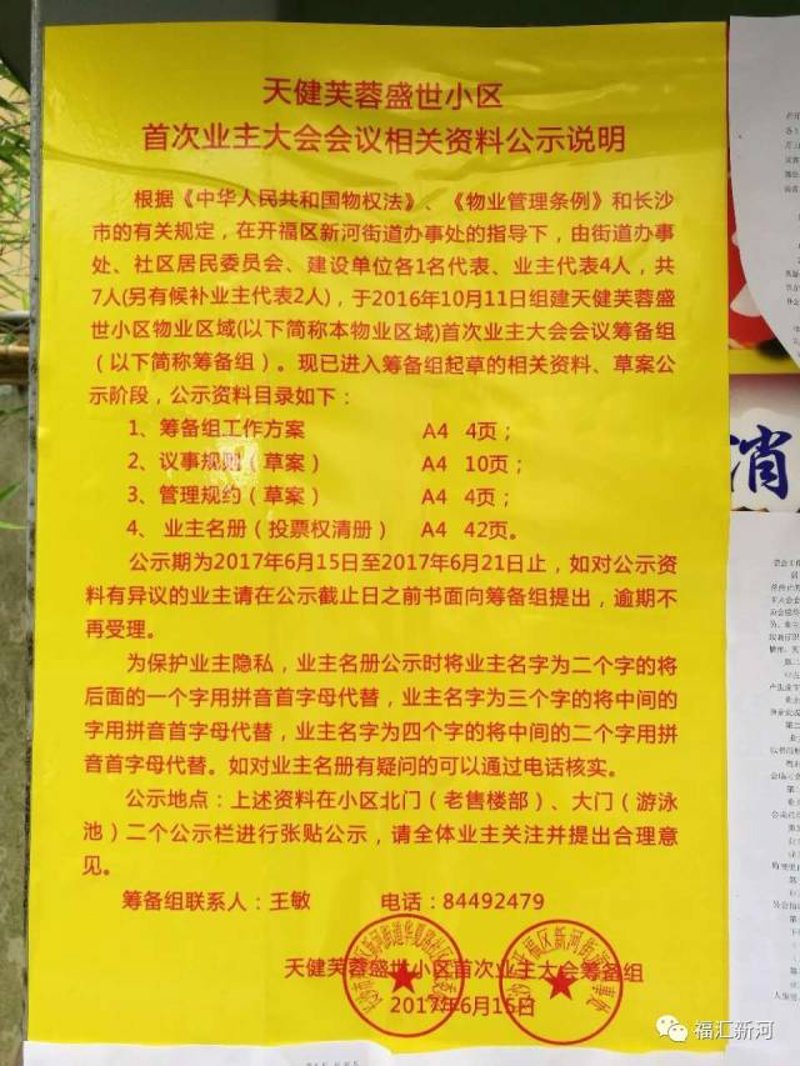 天健芙蓉盛世小区
首次业主大会会议相关资料公示说明
根据《中华人民共和国物权法》、《物业管理条例》和长沙
市的有关规定，在开福区新河街道办事处的指导下，由街道办事
处、社区居民委员会、建设单位各1名代表、业主代表4人，共
7人(另有候补业主代表2人)，于2016年10月11日组建天健芙蓉盛
世小区物业区域(以下简称本物业区域)首次业主大会会议筹备组
（以下简称筹备组）。现已进入筹备组起草的相关资料、草案公
示阶段，公示资料目录如下：
1、筹备组工作方案 A4 4页；
2、议事规则（草案） A4 10页；
3、管理规约（草案） A4 4页；
4、业主名册（投票权清册） A4 42页。
公示期为2017年6月15日至2017年6月21日止，如对公示资
料有异议的业主请在公示截止日之前书面向筹备组提出，逾期不
再受理。
为保护业主隐私，业主名册公示时将业主名字为二个字的将
后面的一个字用拼音首字母代替，业主名字为三个字的将中间的
字用拼音首字母代替，业主名字为四个字的将中间的二个字用拼
音首字母代替。如对业主名册有疑问的可以通过电话核实。
公示地点：上述资料在小区北门（老售楼部）、大门（游泳
池）二个公示栏进行张贴公示，请全体业主关注并提出合理意
见。
筹备组联系人：王敏 电话：84492479
天健芙蓉盛世小区首次业主大会筹备组
2017年6月15日
消
福汇新河